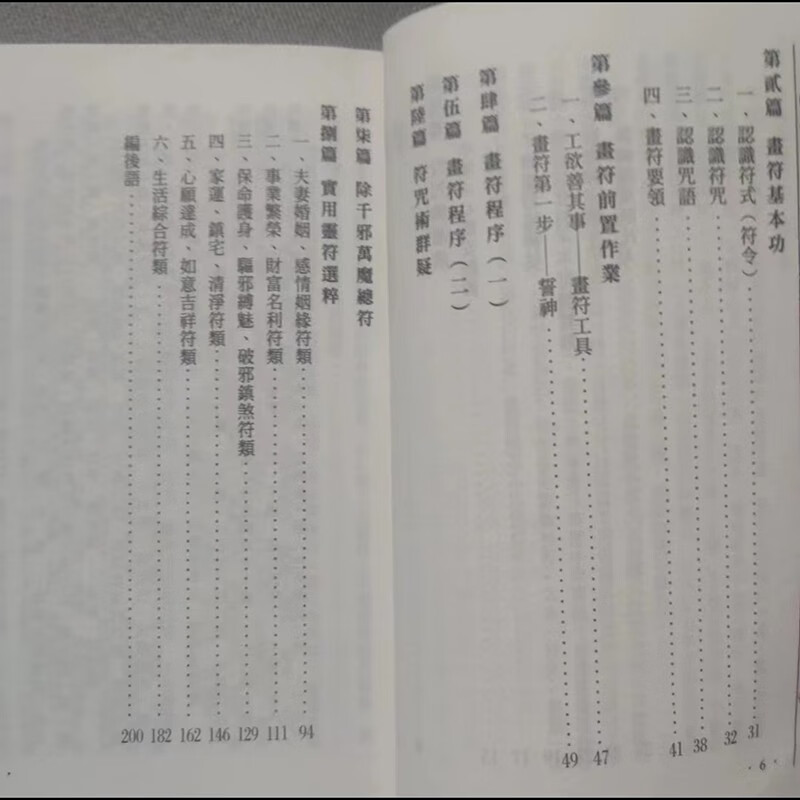 第貳篇 畫符基本功
一、認識符式（符令）……31
二、認識符咒……32
三、認識咒語……38
四、畫符要領……41
第參篇 畫符前置作業
一、工欲善其事——畫符工具……47
二、畫符第一步——誓神……49
第肆篇 畫符程序（一）
第伍篇 畫符程序（二）
第陸篇 符咒術群疑
·6·
第柒篇 除千邪萬魔總符
第捌篇 實用靈符選粹
一、夫妻婚姻、感情姻緣符類……94
二、事業繁榮、財富名利符類……111
三、保命護身、驅邪縛魅、破邪鎮煞符類……129
四、家運、鎮宅、清淨符類……146
五、心願達成、如意吉祥符類……162
六、生活綜合符類……182
編後語……200